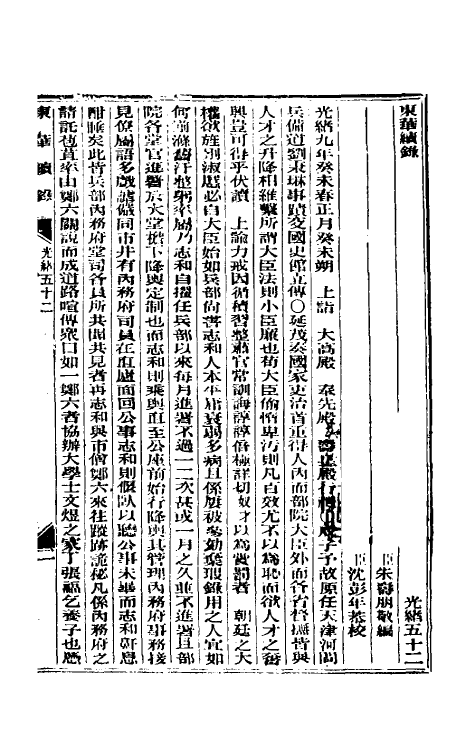 東華續錄
光緒五十二
臣朱壽朋敬編
臣沈彭年恭校
光緒九年癸未春正月癸未朔　上詣　大高殿　奉先殿　壽皇殿行禮予故原任天津河間
兵備道劉秉琳事蹟交國史館立傳○延茂奏國家吏治首重得人內而部院大臣外而各省督撫皆與
人才之升降相維繫所謂大臣法則小臣廉也茍大臣偷惰卑汚則凡百效尤不以為恥而欲人才之奮
興豈可得乎伏讀　上諭力戒因循積習整肅官常訓誨諄諄備極詳切奴才以為賞罰者　朝廷之大
權欲旌別淑慝必自大臣始如兵部尚書志和人本平庸衰弱多病且係屢被參劾棄瑕錄用之人宜如
何前滌舊汙整躬率屬乃志和自擢任兵部以來每月進署不過一二次甚或一月之久並不進署且部
院各堂官進署於大堂檐下降輿定制也而志和則乘輿直至公座前始行降輿其管理內務府事務接
見僚屬語多戲謔儼同市井有內務府司員在直廬面回公事志和則偃臥以聽公事未畢而志和鼾息
酣睡矣此皆兵部內務府堂司各員所共聞共見者再志和與市儈鄭六來往蹤跡詭秘凡係內務府之
請託苞苴率由鄭六關說而成道路喧傳眾口如一鄭六者協辦大學士文煜之家丁張福乞養子也應
東華續錄　光緒五十二　一